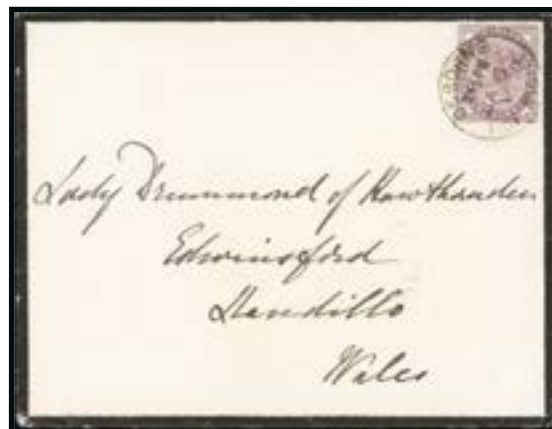 Lady Drummond of Hawthornden
Edwinsford
Llandillo
Wales